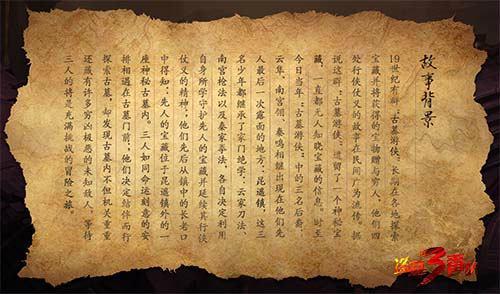 故事背景
19世纪有群“古墓游侠”长期在各地探索
宝藏并将获得的宝物赠与穷人，他们四
处行侠仗义的故事在民间广为流传。据
说这群“古墓游侠”遗留了一个神秘宝
藏，一直都无人知晓宝藏的信息。时至
今日当年“古墓游侠”中的三名后裔，
云隼、南宫翎、秦鸣相继出现在他们先
人最后一次露面的地方：昆遁镇，这三
名少年都继承了家门绝学：云家刀法、
南宫枪法以及秦家拳法，各自决定利用
自身所学守护先人的宝藏并延续其行侠
仗义的精神，他们先后从镇中的长老口
中得知，先人的宝藏位于昆遁镇外的一
座神秘古墓内。三人如同命运刻意的安
排相遇在古墓门前，他们决定结伴而行
探索古墓，却发现古墓内不但机关重重
还藏有许多穷凶极恶的未知敌人，等待
三人的将是充满挑战的冒险之旅。
3